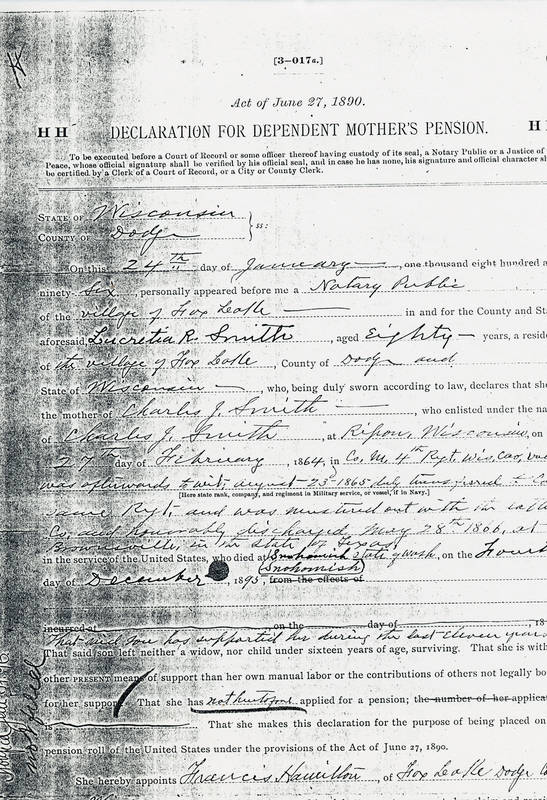 [3–017a.]
Act of June 27, 1890.
H H DECLARATION FOR DEPENDENT MOTHER'S PENSION. H
To be executed before a Court of Record or some officer thereof having custody of its seal, a Notary Public or a Justice of
Peace, whose official signature shall be verified by his official seal, and in case he has none, his signature and official character
be certified by a Clerk of a Court of Record, or a City or County Clerk.
STATE OF Wisconsin
COUNTY OF Dodge } ss:
On this 24th day of January, one thousand eight hundred
ninety-six, personally appeared before me a Notary Public
of the village of Fox Lake in and for the County and
aforesaid, Lucretia R. Smith, aged Eighty years, a
of the village of Fox Lake, County of Dodge and
State of Wisconsin, who, being duly sworn according to law, declares that
the mother of Charles J. Smith, who enlisted under the
of Charles J. Smith, at Ripon, Wisconsin, on
27th day of February, 1864, in Co. M, 4th Regt. Wis. Cav,
was afterwards to wit, august 23-1865 duly transferred to
[Here state rank, company, and regiment in Military service, or vessel, if in Navy.]
same Regt. and was mustered out with the
Co, and honorably discharged, May 28th 1866, at
Brownsville, in the state of Texas
in the service of the United States, who died at Snohomish State of Wash, on the Fourth
Snohomish
day of December, 1895, from the effects of
incurred at on the day of , 18
That said son has supported her during the last eleven years
That said son left neither a widow, nor child under sixteen years of age, surviving. That she is
other PRESENT means of support than her own manual labor or the contributions of others not legally
for her support. That she has not heretofore applied for a pension; the number of her
That she makes this declaration for the purpose of being placed on
pension roll of the United States under the provisions of the Act of June 27, 1890.
She hereby appoints Francis Hamilton, of Fox Lake Dodge